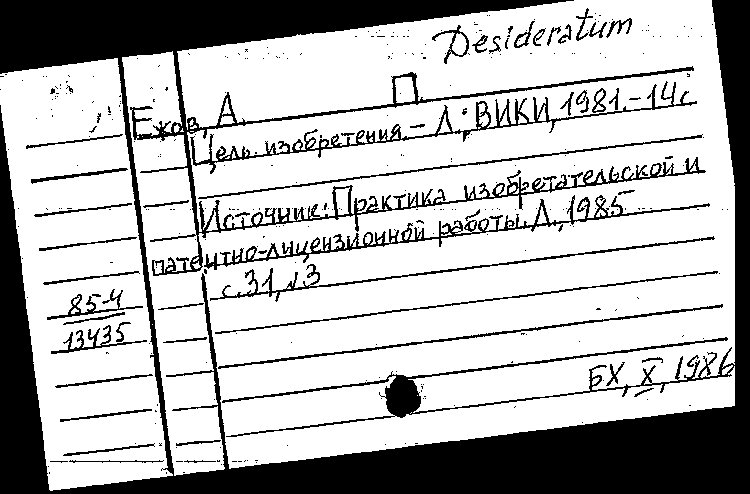 Desideratum
Ежов, А. П.
Цель изобретения. – Л.; ВИКИ, 1981. – 14 с.
Источник: Практика изобретательской и
патентно-лицензионной работы. Л., 1985
с. 31, №3
85-4
13435
БХ, X, 1986